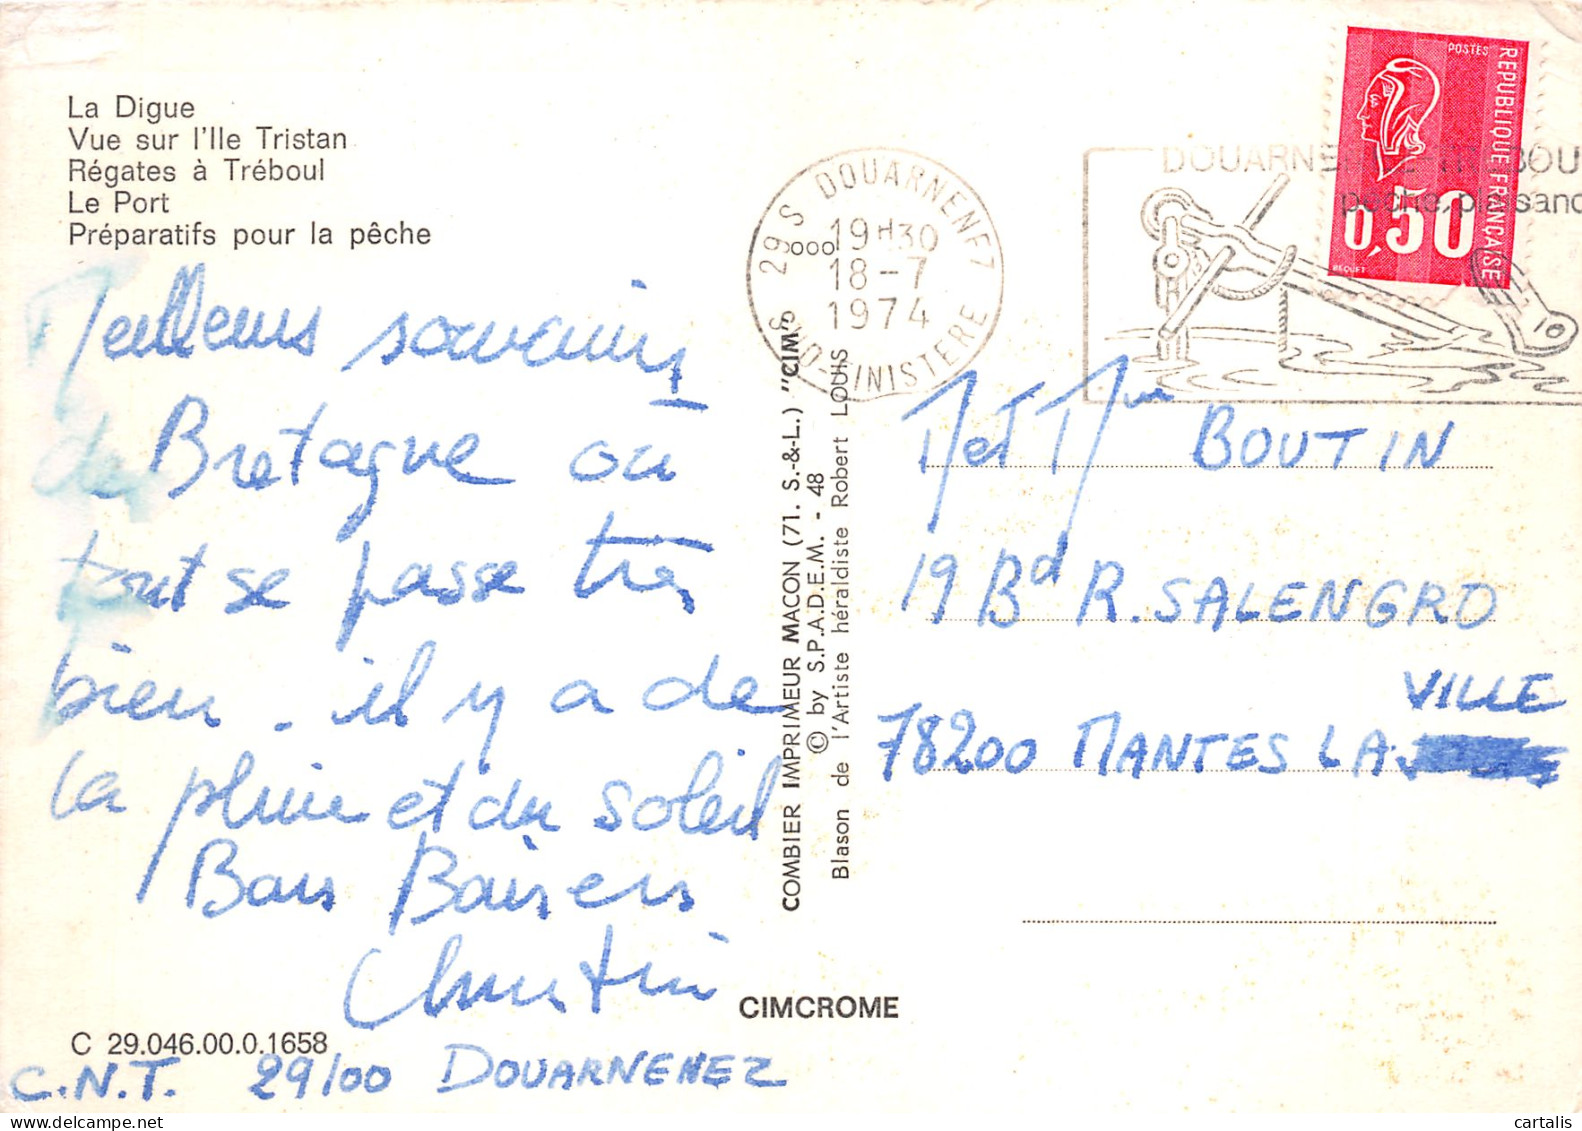 La Digue
Vue sur l'Ile Tristan
Régates à Tréboul
Le Port
Préparatifs pour la pêche
Meilleurs souvenirs
de Bretagne où
tout se passe très
bien. il y a de
la pluie et du soleil
Bons Baisers
Christine
C 29.046.00.0.1658
C.N.T. 29100 DOUARNENEZ
CIMCROME
COMBIER IMPRIMEUR MACON (71. S.-&-L.) "CIM"
© by S.P.A.D.E.M. - 48
Blason de l'Artiste héraldiste Robert LOUIS
29 S DOUARNENEZ
19H30
18-7
1974
S FINISTERE
DOUARNE BOU
pêche, plaisanc
POSTES
REPUBLIQUE FRANÇAISE
0,50
BEQUET
M et Mme BOUTIN
19 Bd R. SALENGRO
VILLE
78200 MANTES LA
cartalis